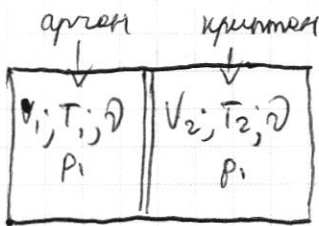 аргон криптон
V₁; T₁; ν V₂; T₂; ν
p₁ p₁